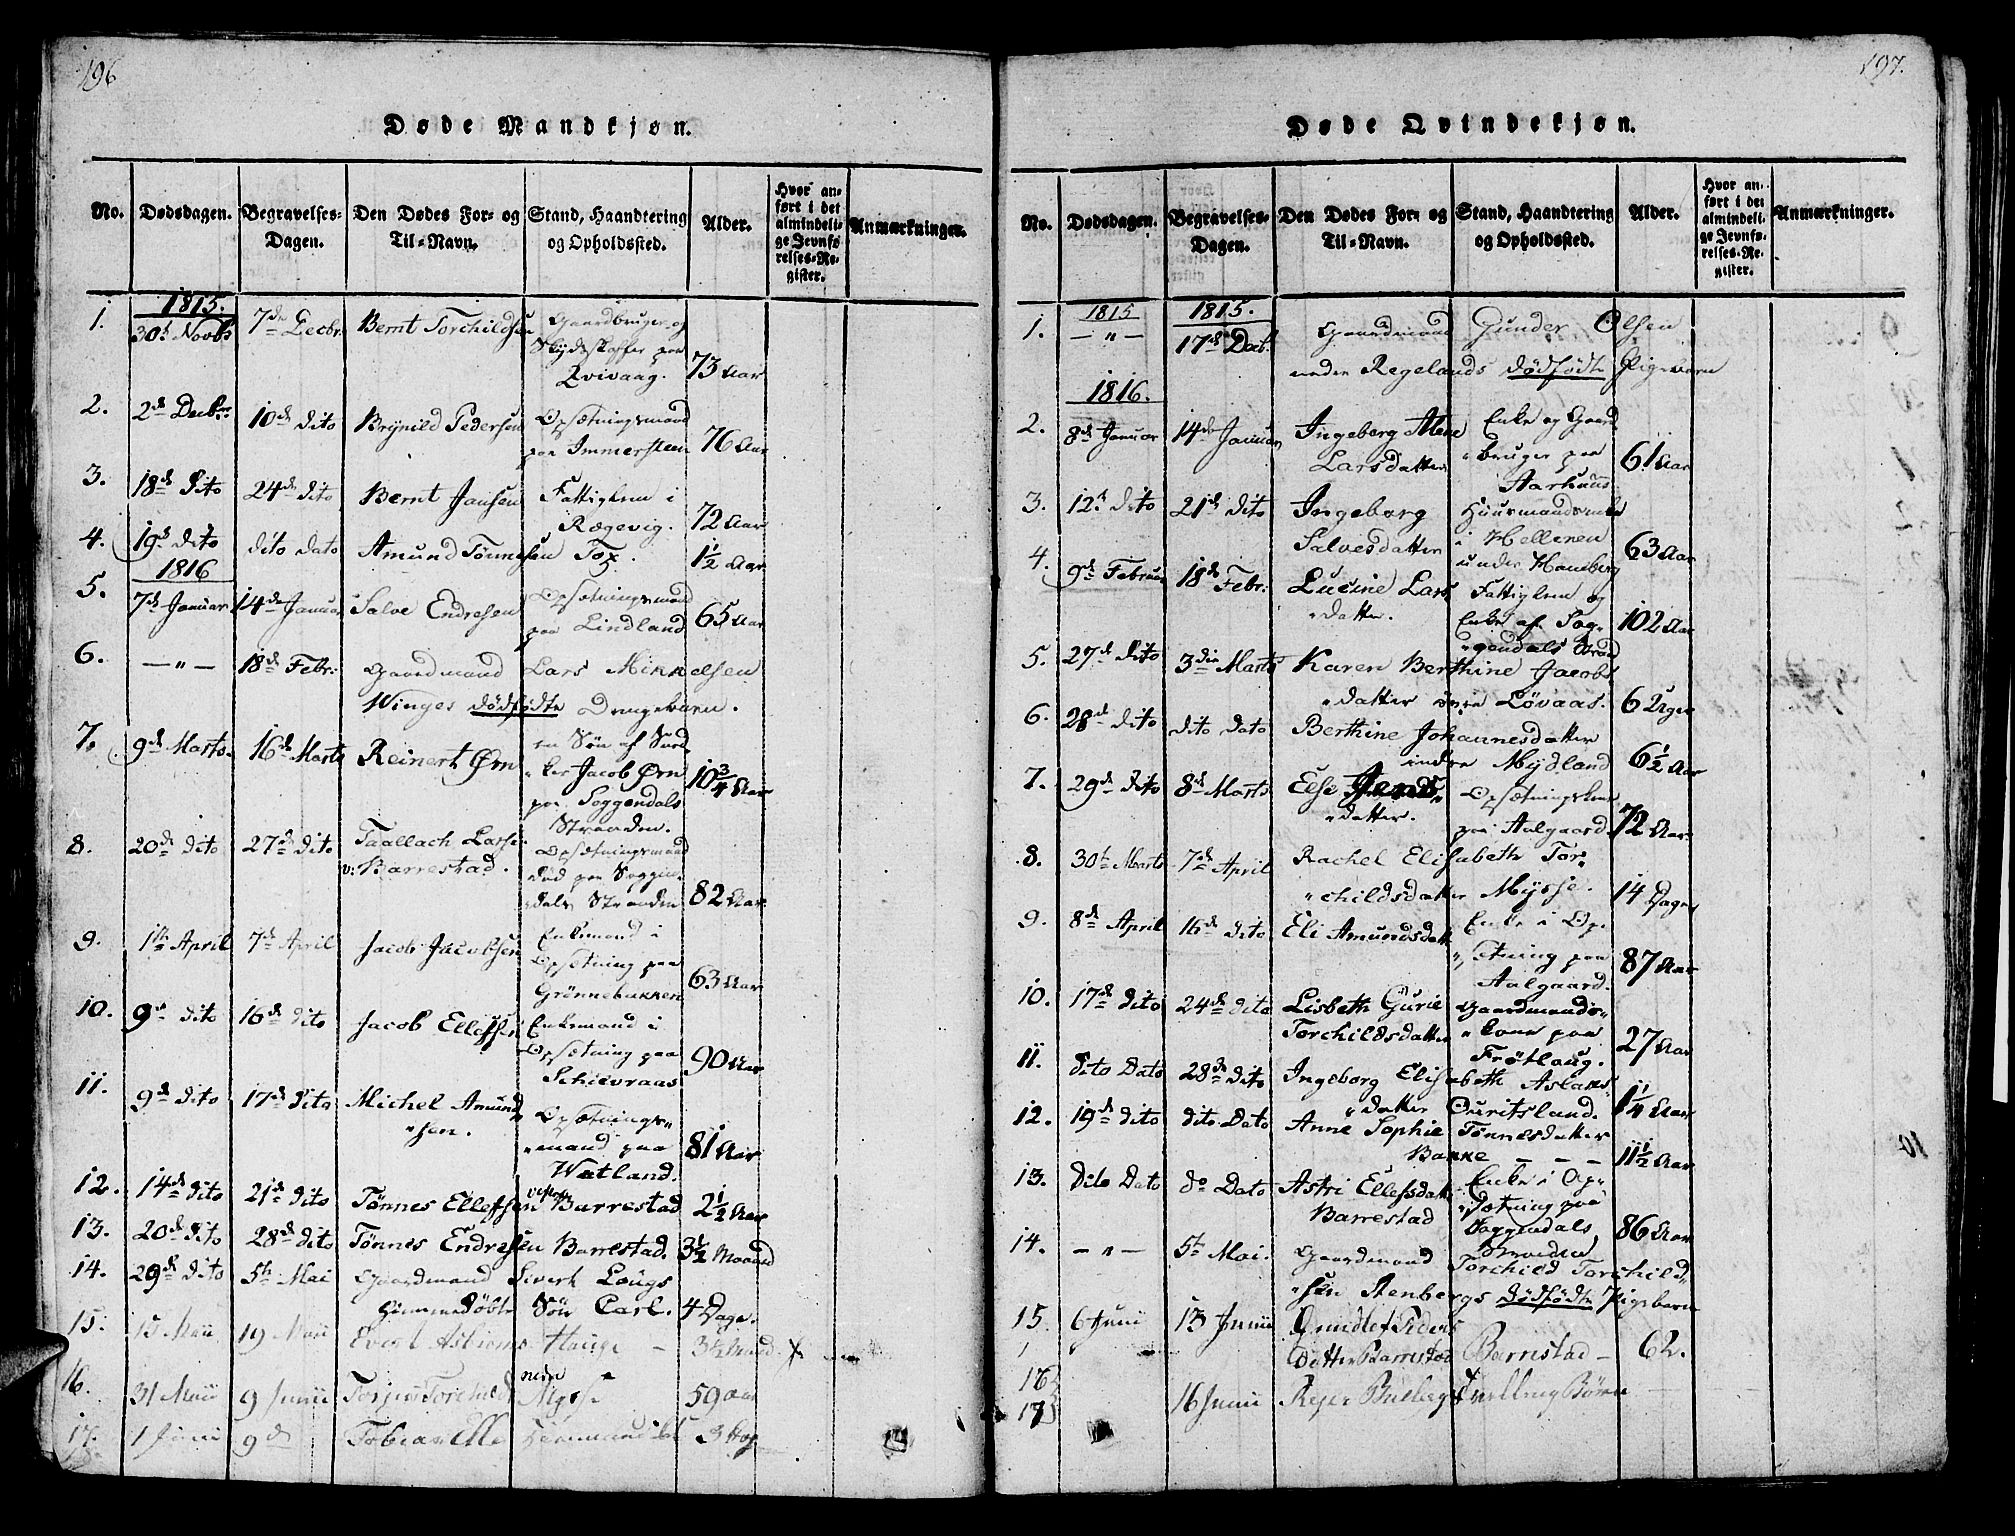 196
Døde Mandkjøn.
No. Dødsdagen. Begravelses-Dagen. Den Dødes For- og Til-Navn. Stand, Haandtering og Opholdssted. Alder. Hvor anført i det almindelige Jevnførelses-Register. Anmærkninger.
1815.
1. 30t Novbr 7de Decbr. Bernt Torchildsen Gaardbruger og
Skydsskaffer paa
Qvivaag. 73 Aar
2. 2de Decbr. 10de dito Brynild Pedersen Opsætningsmand
paa Immersteen 76 Aar
3. 18de dito 24de dito Bernt Jansen Fattiglem i
Rægevig. 72 Aar
4. 19de dito dito dato Amund Tønnesen Tox. 1½ Aar
1816
5. 7de Januar 14de Januar Salve Endresen Opsætningsmand
paa Lindland 65 Aar
6. —"— 18de Febr: Gaardmand Lars Mikkelsen
Winges dødfødte Drengebarn.
7. 9de Marts 16de Marts Reinert Ørn en Søn af Sned-
ker Jacob Ørn
paa Soggendals
Stranden. 10¾ Aar
8. 20de dito 27de dito Taallach Larsen
v: Barrestad. Opsætningsmand
død paa Soggen-
dals Stranden 82 Aar
9. 1te April 7de April Jacob Jacobsen Enkemand i
Opsætning paa
Grønnebakken 63 Aar
10. 9de dito 16de dito Jacob Ellefsen Enkemand i
Opsætning paa
Schievraas 90 Aar
11. 9de dito 17de dito Michel Amund-
"sen. Opsætnings-
"mand paa
Watland. 81 Aar
12. 14de dito 21de dito Tønnes Ellefsen Barrestad 2½ Aar
13. 20de dito 28de dito Tønnes Endresen Barrestad. 3½ Maaned
14. 29de dito 5te Mai Gaardmand Sivert Lougs
hiemmedøbte Søn Carl. 4 Dage.
15. 15 Maii 19 Maii Hauge
16. 31 Maii 9 Junii Torchilds Mysse 59 aar
17. 1 Junii 9 d Tobias
197.
Døde Qvindekjøn.
No. Dødsdagen. Begravelses-Dagen. Den Dødes For- og Til-Navn. Stand, Haandtering og Opholdssted. Alder. Hvor anført i det almindelige Jevnførelses-Register. Anmærkninger.
1815 1815.
1. —"— 17de Decb. Gaardmand Gunder Olsen
nedre Regelands dødfødte Pigebarn
1816.
2. 8de Januar 14de Januar Ingeborg Malene
Larsdatter Enke og Gaard
"bruger paa
Aarhuus 61 Aar
3. 12t dito 21de dito Ingeborg
Salvesdatter Huusmandsenke
i Hellenen
under Haneberg 63 Aar
4. 9de Februar 18de Febr: Lucine Lars
"datter. Fattiglem og
Enke af Sog-
"gendals Strand 102 Aar
5. 27de dito 3die Marts Karen Berthine Jacobs
"datter øvre Løvaas. 6 Uger
6. 28de dito dito dato Berthine Johannesdatter
indre Mydland 6½ Aar
7. 29de dito 8de Marts Else Jens"
"datter. Opsætningslem
paa Aalgaard. 72 Aar
8. 30te Marts 7de April Rachel Elisabeth Tor"
"childsdatter Mysse. 14 Dage
9. 8de April 16de dito Eli Amundsdatter Enke i Op-
"sætning paa
Aalgaard. 87 Aar
10. 17de dito 24de dito Lisbeth Gurie
Torchildsdatter Gaardmands"
"kone paa
Frøtlaug. 27 Aar
11. dito Dato 28de dito Ingeborg Elisabeth Aslaks"
"datter Ouritsland. 1¼ Aar
12. 19de dito dito Dato Anne Sophie Tønnesdatter
Bakke — — — 11½ Aar
13. dito Dato do Dato Astri Ellefsdatter
Barrestad Enke i Op"
"sætning paa
Soggendals
Stranden 86 Aar
14. —"— 5te Mai. Gaardmand Torchild Torchild"
"sen Renbergs dødfødte Pigebarn
15 6 Junii 13 Junii
Datter Barrestad Barrestad —
16
17 16 Junii Tvilling Børn